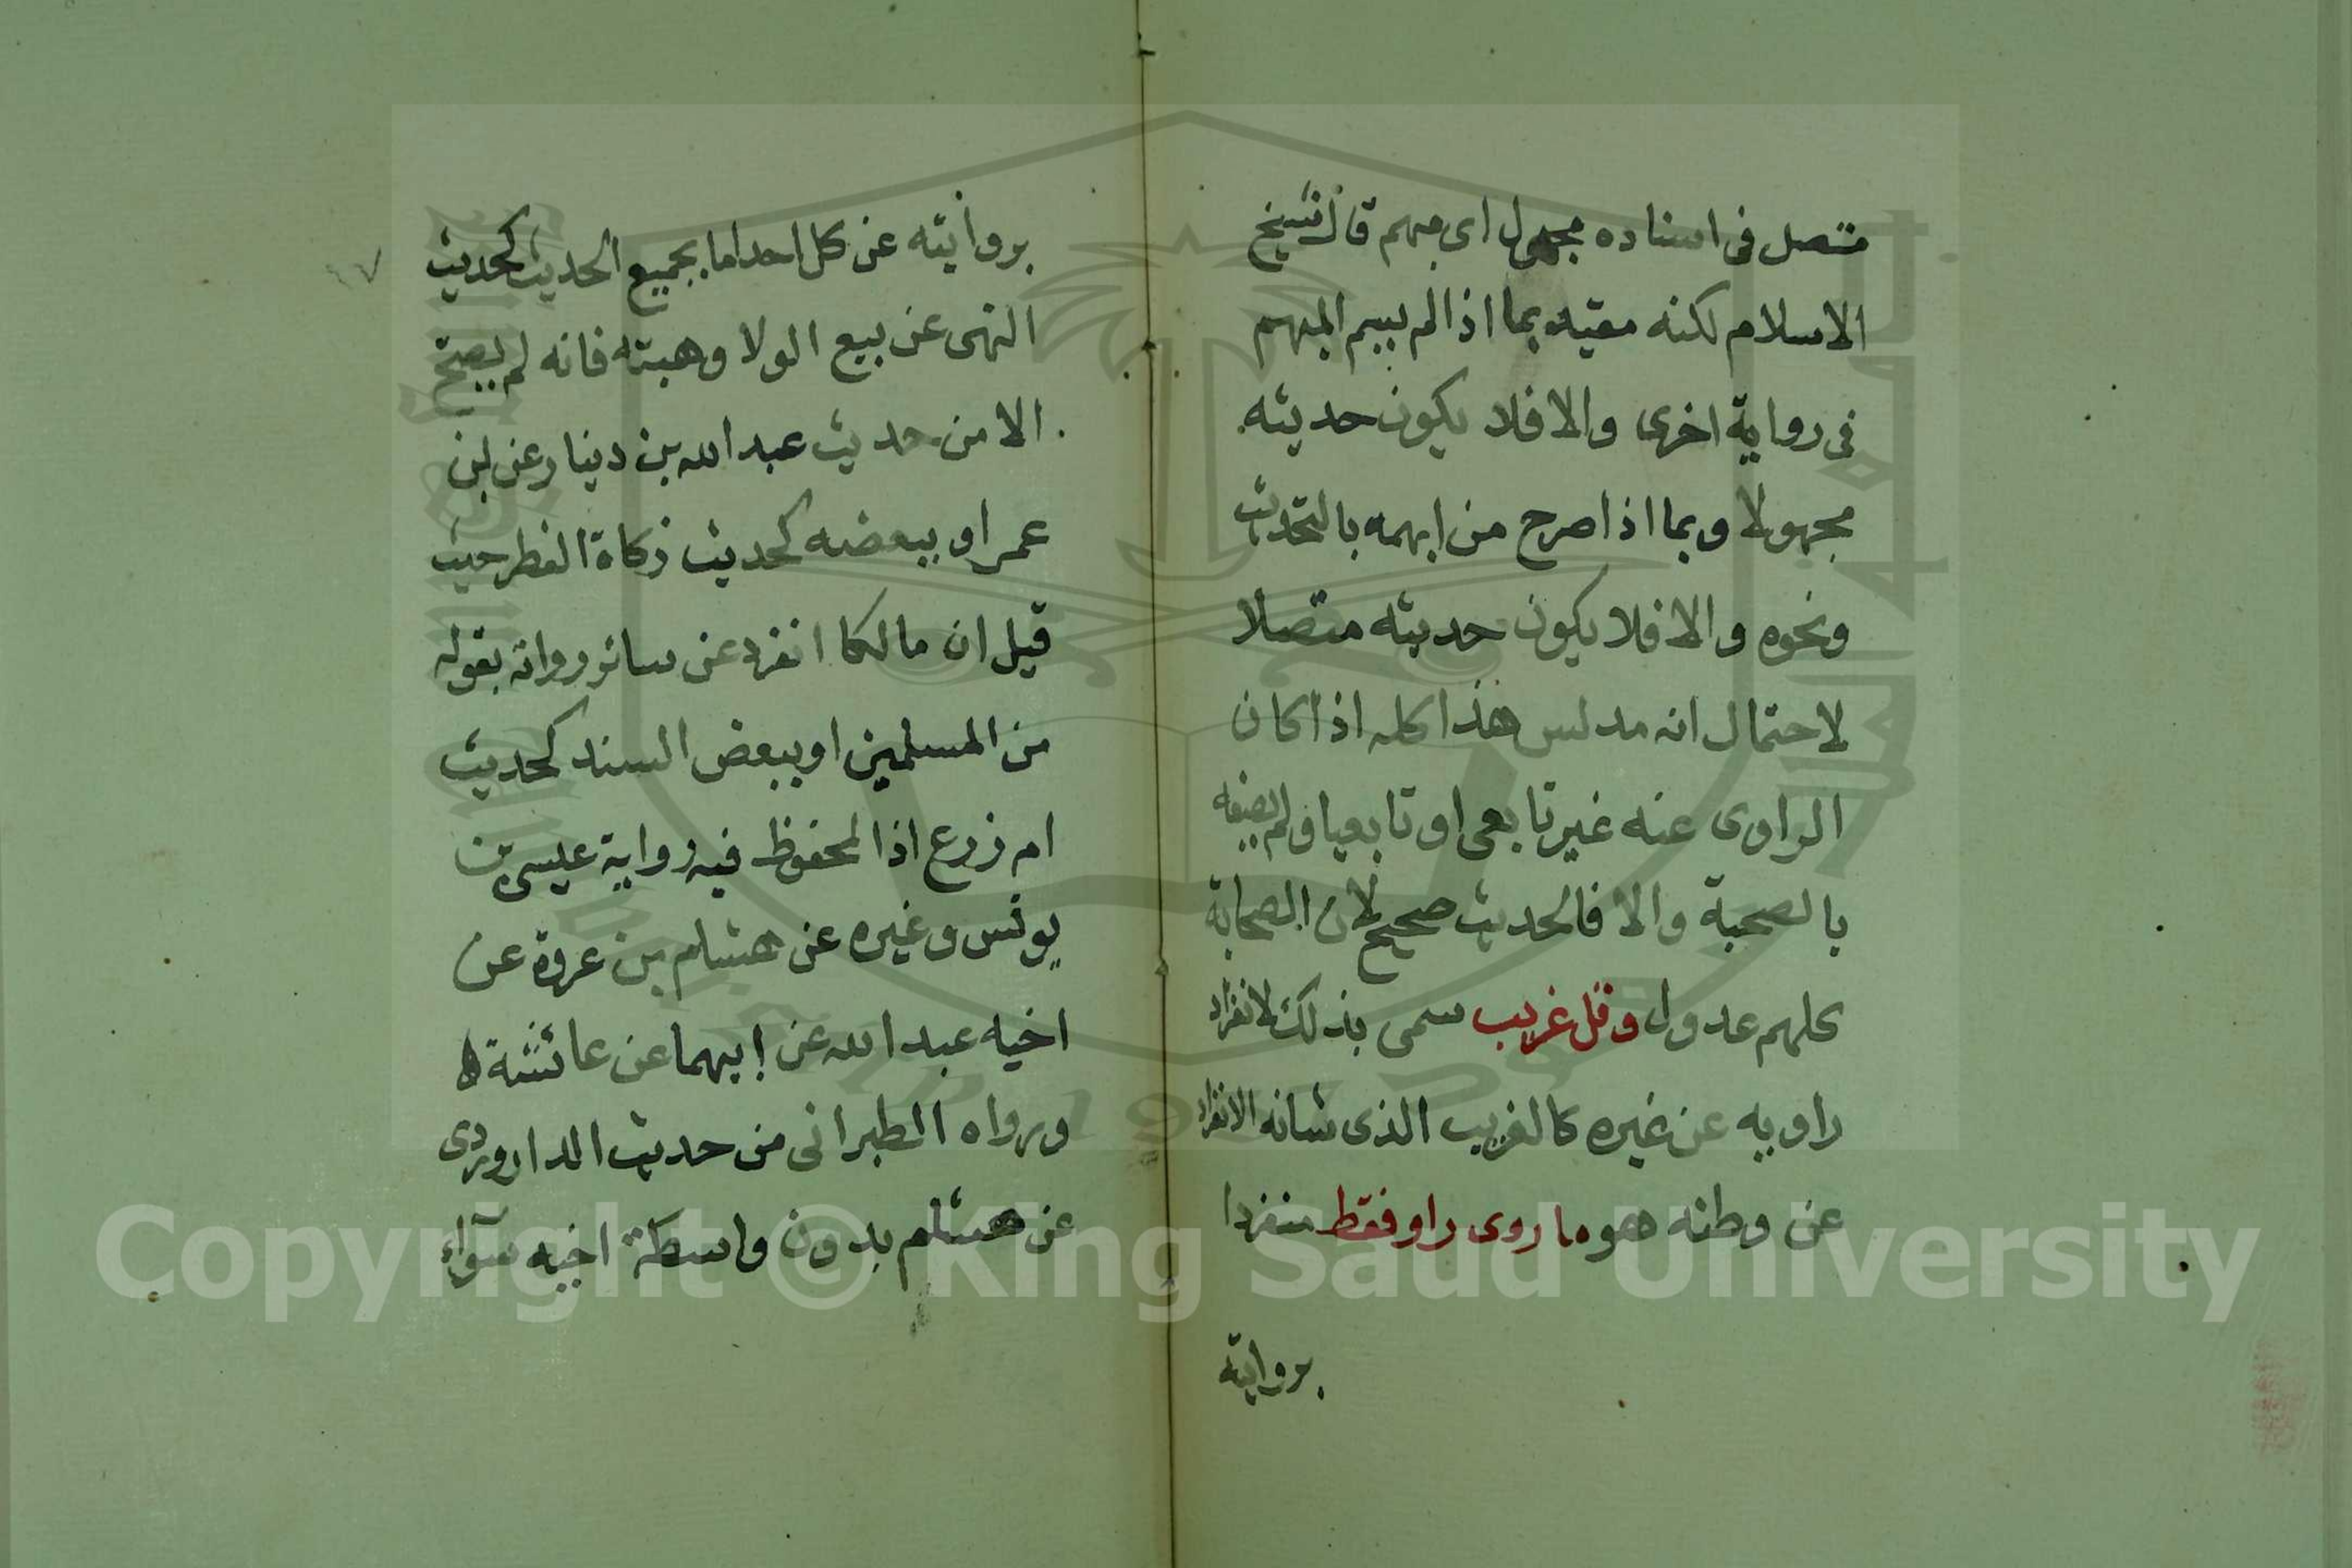 متصل فى اسناده مجهول اى مبهم قال شيخ
الاسلام لكنه مقيد بما اذا لم يسم المبهم
فى رواية اخرى والا فلا يكون حديثه
مجهولا وبما اذا صرح من ابهمه بالتحديث
ونحوه والا فلا يكون حديثه متصلا
لاحتمال انه مدلس هذا كله اذا كان
الراوى عنه غير تابعى او تابعيا ولم يصفه
بالصحبة والا فالحديث صحيح لان الصحابة
كلهم عدول وقل غريب سمى بذلك لانفراد
راويه عن غيره كالغريب الذى شانه الانفراد
عن وطنه هو ما روى راو فقط منفردا
بروايته
بروايته عن كل احد اما بجميع الحديث كحديث
النهى عن بيع الولا وهبته فانه لم يصح
الا من حديث عبد الله بن دينار عن ابن
عمر او ببعضه كحديث زكاة الفطر حيث
قيل ان مالكا انفرد عن سائر رواته بقوله
من المسلمين او ببعض السند كحديث
ام زرع اذ المحفوظ فيه رواية عيسى بن
يونس وغيره عن هشام بن عروة عن
اخيه عبد الله عن ابيهما عن عائشة
ورواه الطبرانى من حديث الداروردى
عن هشام بدون واسطة اخيه سوآء
Copyright © King Saud University